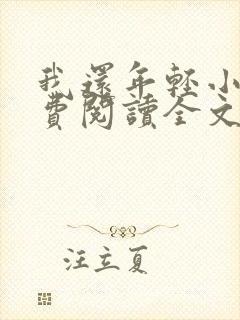 我還年輕小
費閱讀全文
汪立夏